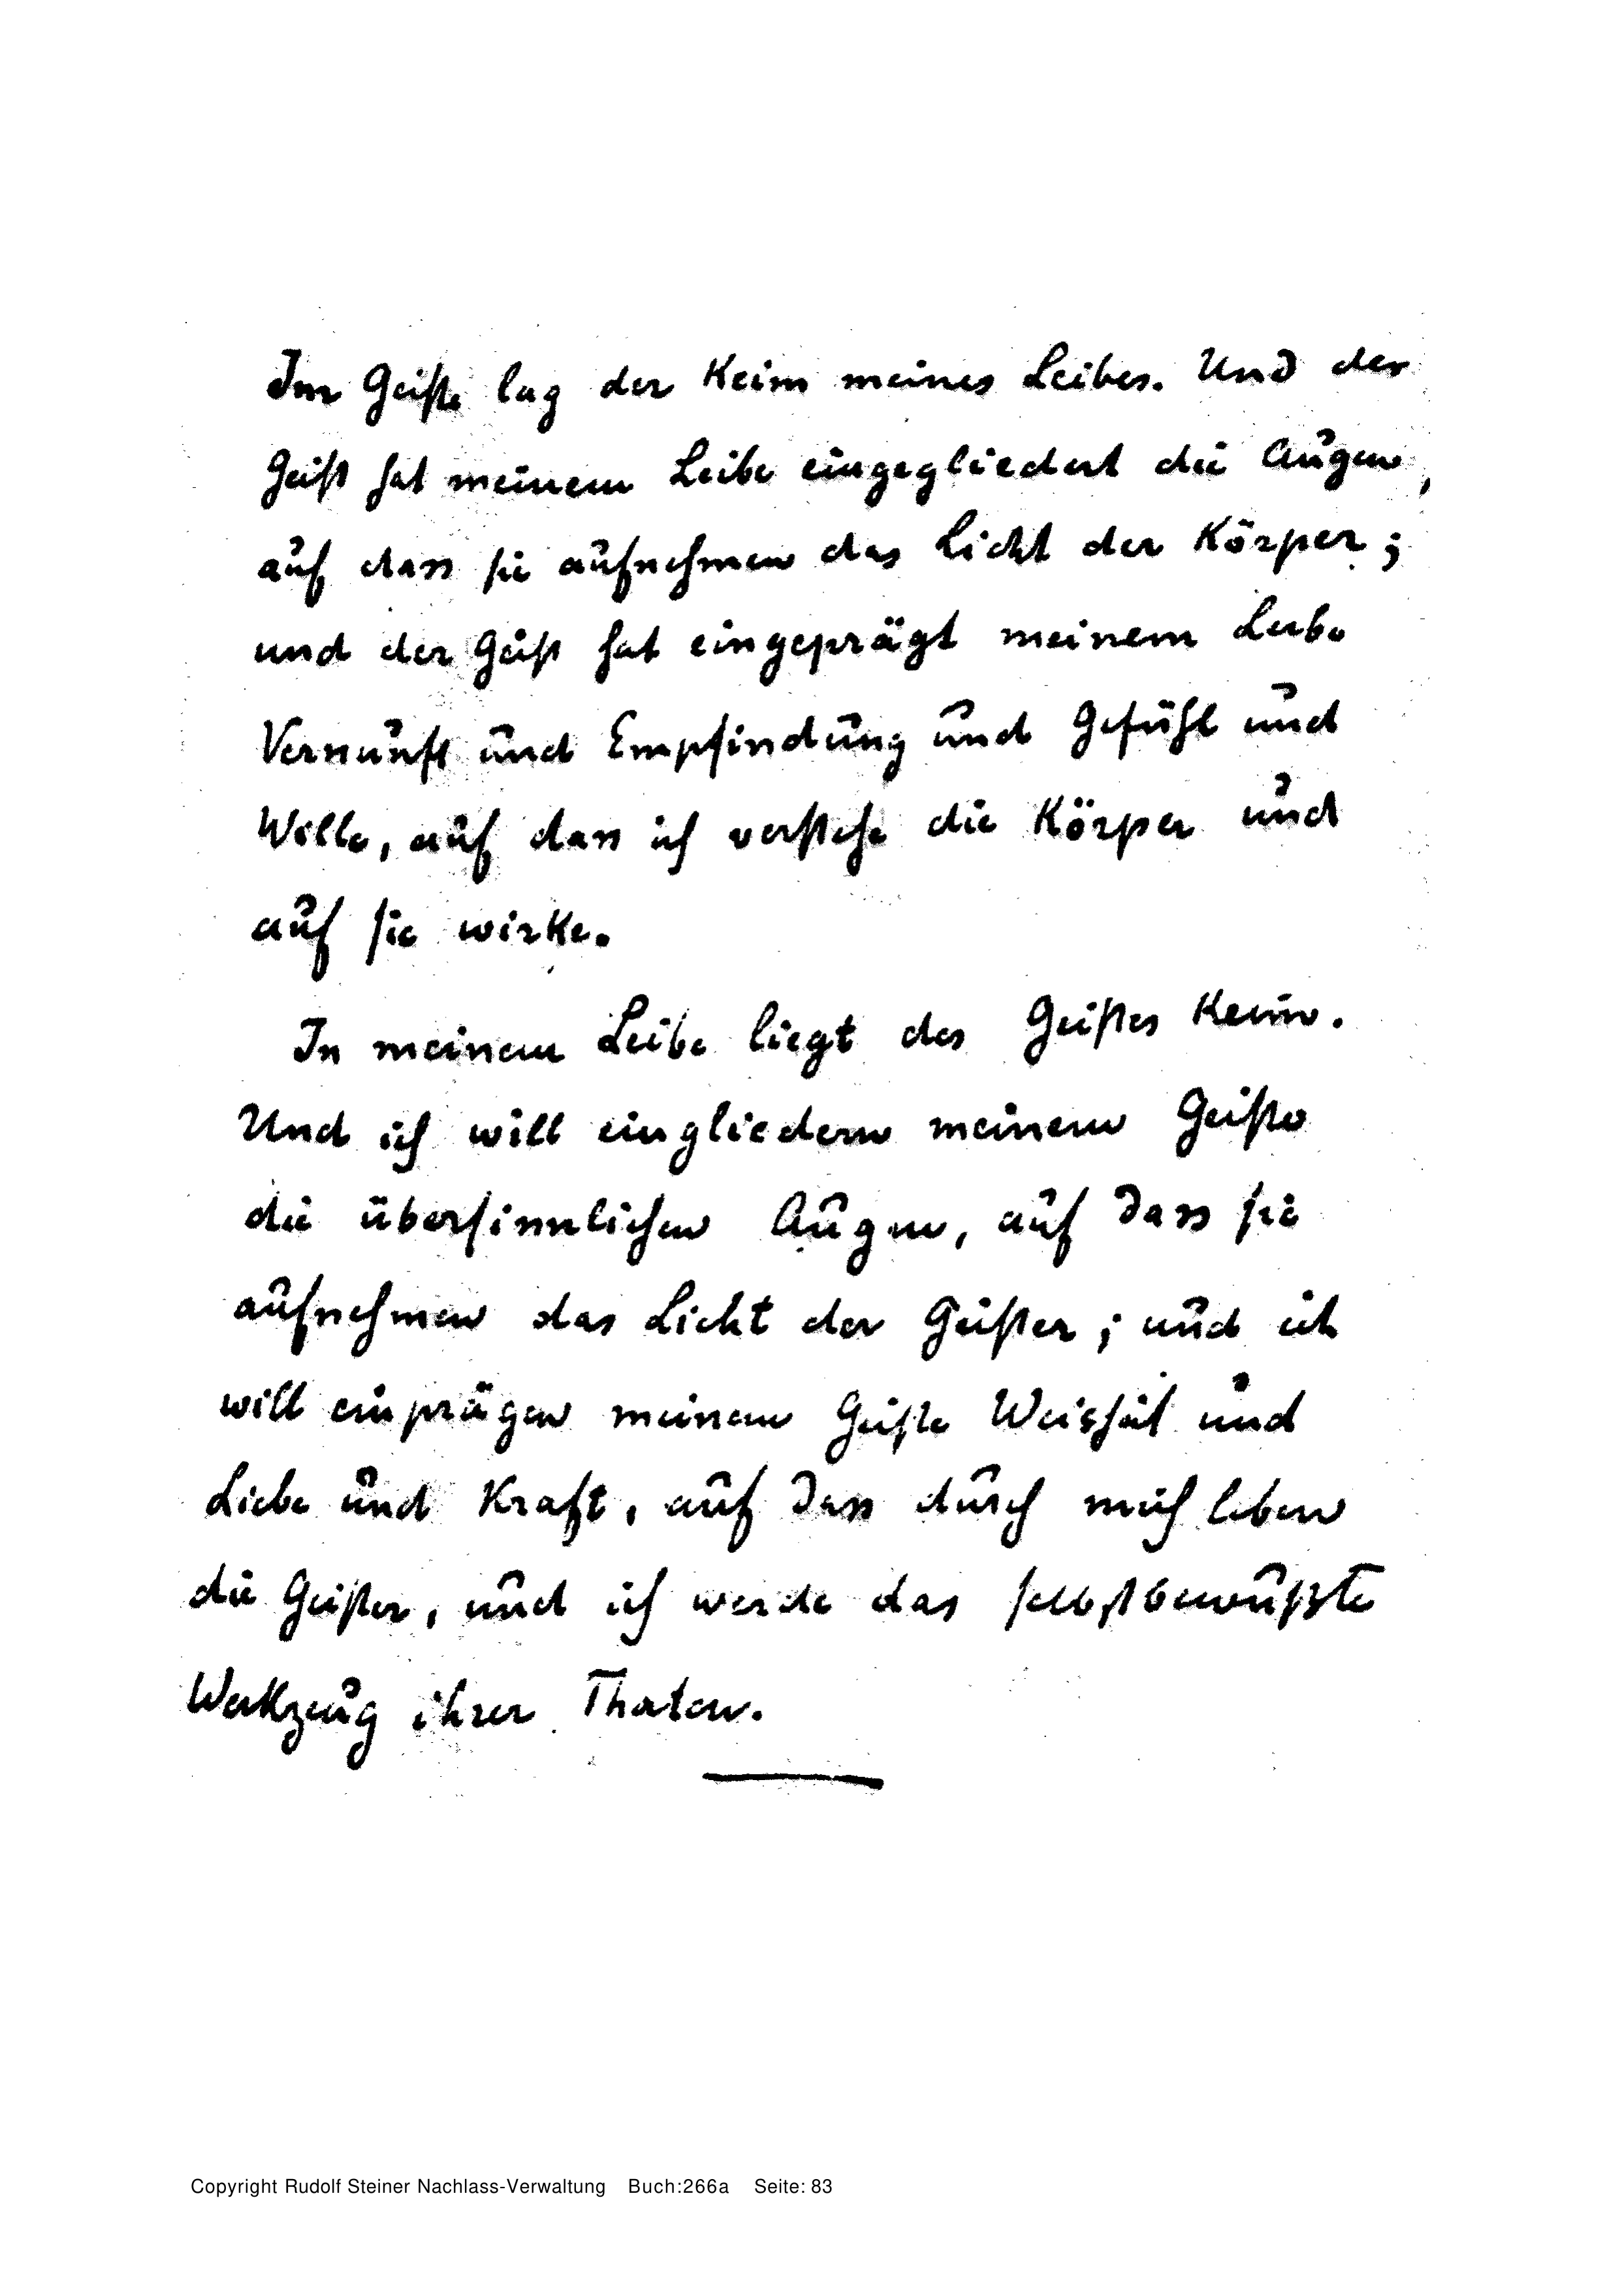 Im Geiste lag der Keim meines Leibes. Und der
Geist hat meinem Leibe eingegliedert die Augen,
auf dass sie aufnehmen das Licht der Körper;
und der Geist hat eingeprägt meinem Leibe
Vernunft und Empfindung und Gefühl und
Wille, auf dass ich verstehe die Körper und
auf sie wirke.
In meinem Leibe liegt des Geistes Keim.
Und ich will eingliedern meinem Geiste
die übersinnlichen Augen, auf dass sie
aufnehmen das Licht der Geister; und ich
will einprägen meinem Geiste Weisheit und
Liebe und Kraft, auf dass durch mich leben
die Geister, und ich werde das selbstbewußte
Werkzeug ihrer Thaten.
Copyright Rudolf Steiner Nachlass-Verwaltung Buch:266a Seite: 83